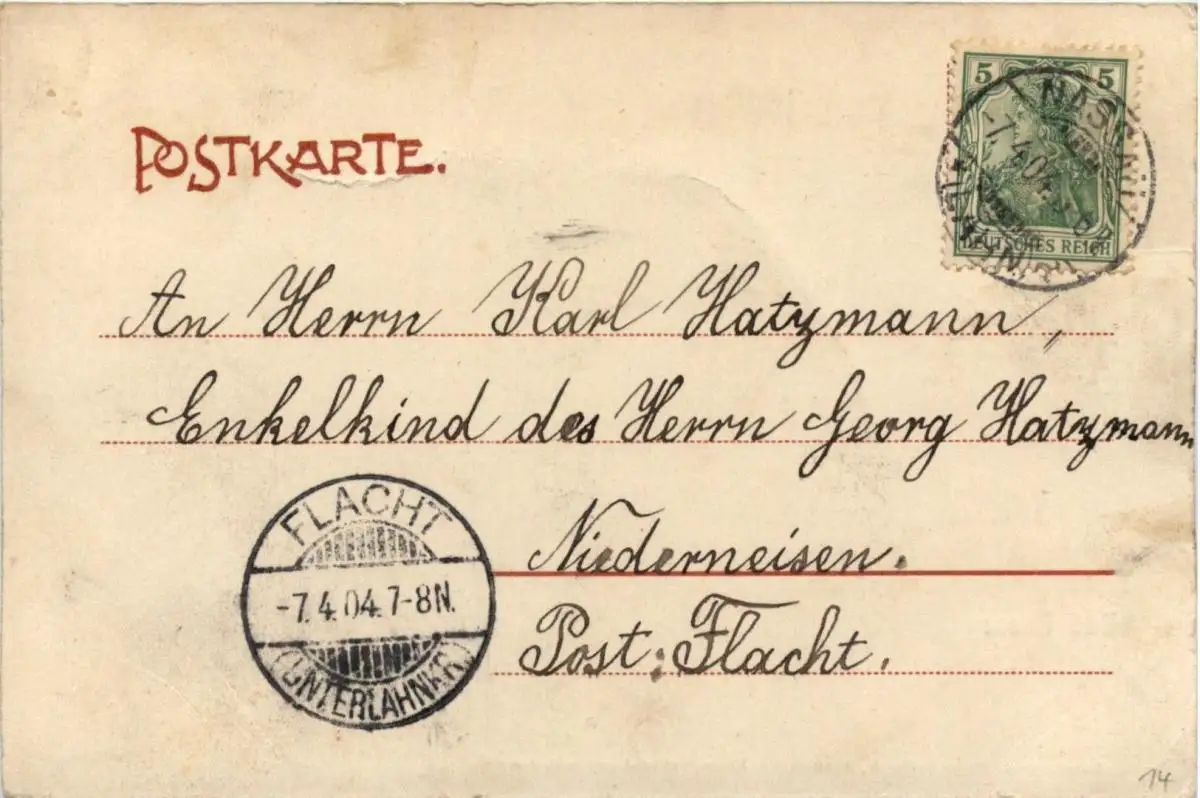 POSTKARTE.
5 5
DEUTSCHES REICH
An Herrn Karl Hatzmann,
Enkelkind des Herrn Georg Hatzmann
Niederneisen.
Post: Flacht.
FLACHT
-7.4.04.7-8N.
(UNTERLAHNKR.)
14